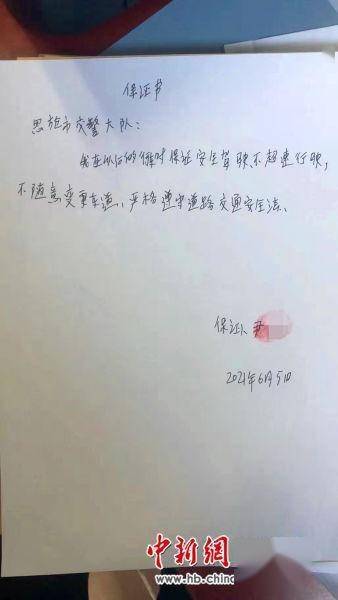 保证书
恩施市交警大队:
我在以后的行驶时保证安全驾驶不超速行驶,
不随意变更车道、严格遵守道路交通安全法、
保证人 尹
2021年6月5日
中新網
www.hb.chinc